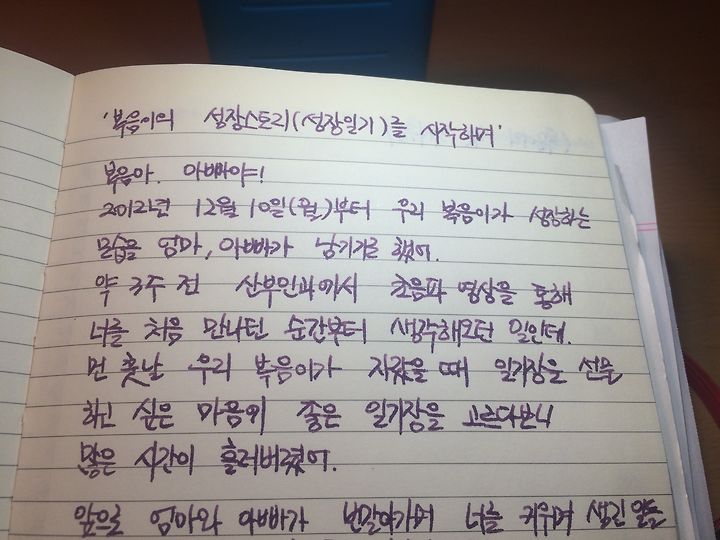 '복음이의 성장스토리(성장일기)를 시작하며'
복음아. 아빠야!
2012년 12월 10일(월)부터 우리 복음이가 성장하는
모습을 엄마, 아빠가 남기기로 했어.
약 3주 전 산부인과에서 초음파 영상을 통해
너를 처음 만나던 순간부터 생각해오던 일인데.
먼 훗날 우리 복음이가 자랐을 때 일기장을 선물
하고 싶은 마음에 좋은 일기장을 고르다보니
많은 시간이 흘러버렸어.
앞으로 엄마와 아빠가 번갈아가며 너를 키우며 생긴 일들